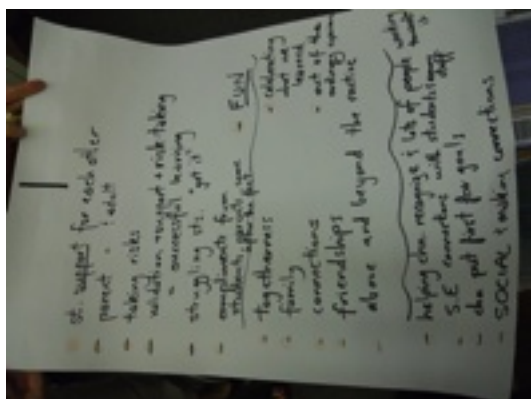 st. support for each other
parent - " adult
taking risks
validation + support + risk taking
= successful learning
struggling sts. "got it"
compliments from
students, parents even
after the fact
togetherness
family
connections
friendships
above and beyond the routine
- FUN
celebrating
what we
learned
out of the
ordinary
helping chn. recognize lots of people
S.E. connections with students
chn put first for goals
SOCIAL + making connections